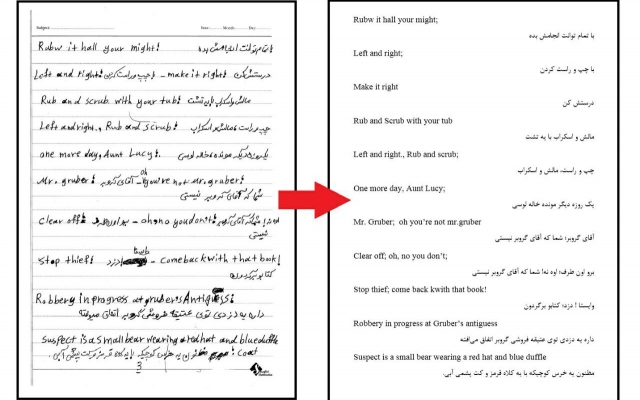 Rubw it hall your might! با تمام توانت انجامش بده
Left and right! با چپ و راست کردن - make it right! درستش کن
Rub and scrub with your tub! مالش و اسکراب با یه تشت
Left and right., Rub and scrub! چپ و راست، مالش و اسکراب
one more day, Aunt Lucy! یک روزه دیگر مونده خاله لوسی
Mr. gruber! آقای گروبر - oh you're not mr. gruber!
شما که آقای گروبر نیستی
Clear off! برو اون طرف - oh no you don't!
نیستی
Stop thief! وایستا دزد - come back with that book!
کتابو برگردون
Robbery in progress at gruber's Antiguess!
داره یه دزدی توی عتیقه فروشی گروبر اتفاق میوفته
suspect is a small bear wearing a red hat and blue duffle
coat!
3
Rubw it hall your might;
با تمام توانت انجامش بده
Left and right;
با چپ و راست کردن
Make it right
درستش کن
Rub and Scrub with your tub
مالش و اسکراب با یه تشت
Left and right., Rub and scrub;
چپ و راست، مالش و اسکراب
One more day, Aunt Lucy;
یک روزه دیگر مونده خاله لوسی
Mr. Gruber; oh you're not mr.gruber
آقای گروبر؛ شما که آقای گروبر نیستی
Clear off; oh, no you don't;
برو اون طرف؛ اوه نه! شما که آقای گروبر نیستی
Stop thief; come back kwith that book!
وایستا ! دزد؛ کتابو برگردون
Robbery in progress at Gruber's antiguess
داره یه دزدی توی عتیقه فروشی گروبر اتفاق می‌افته
Suspect is a small bear wearing a red hat and blue duffle
مظنون یه خرس کوچیکه با یه کلاه قرمز و کت پشمی آبی.